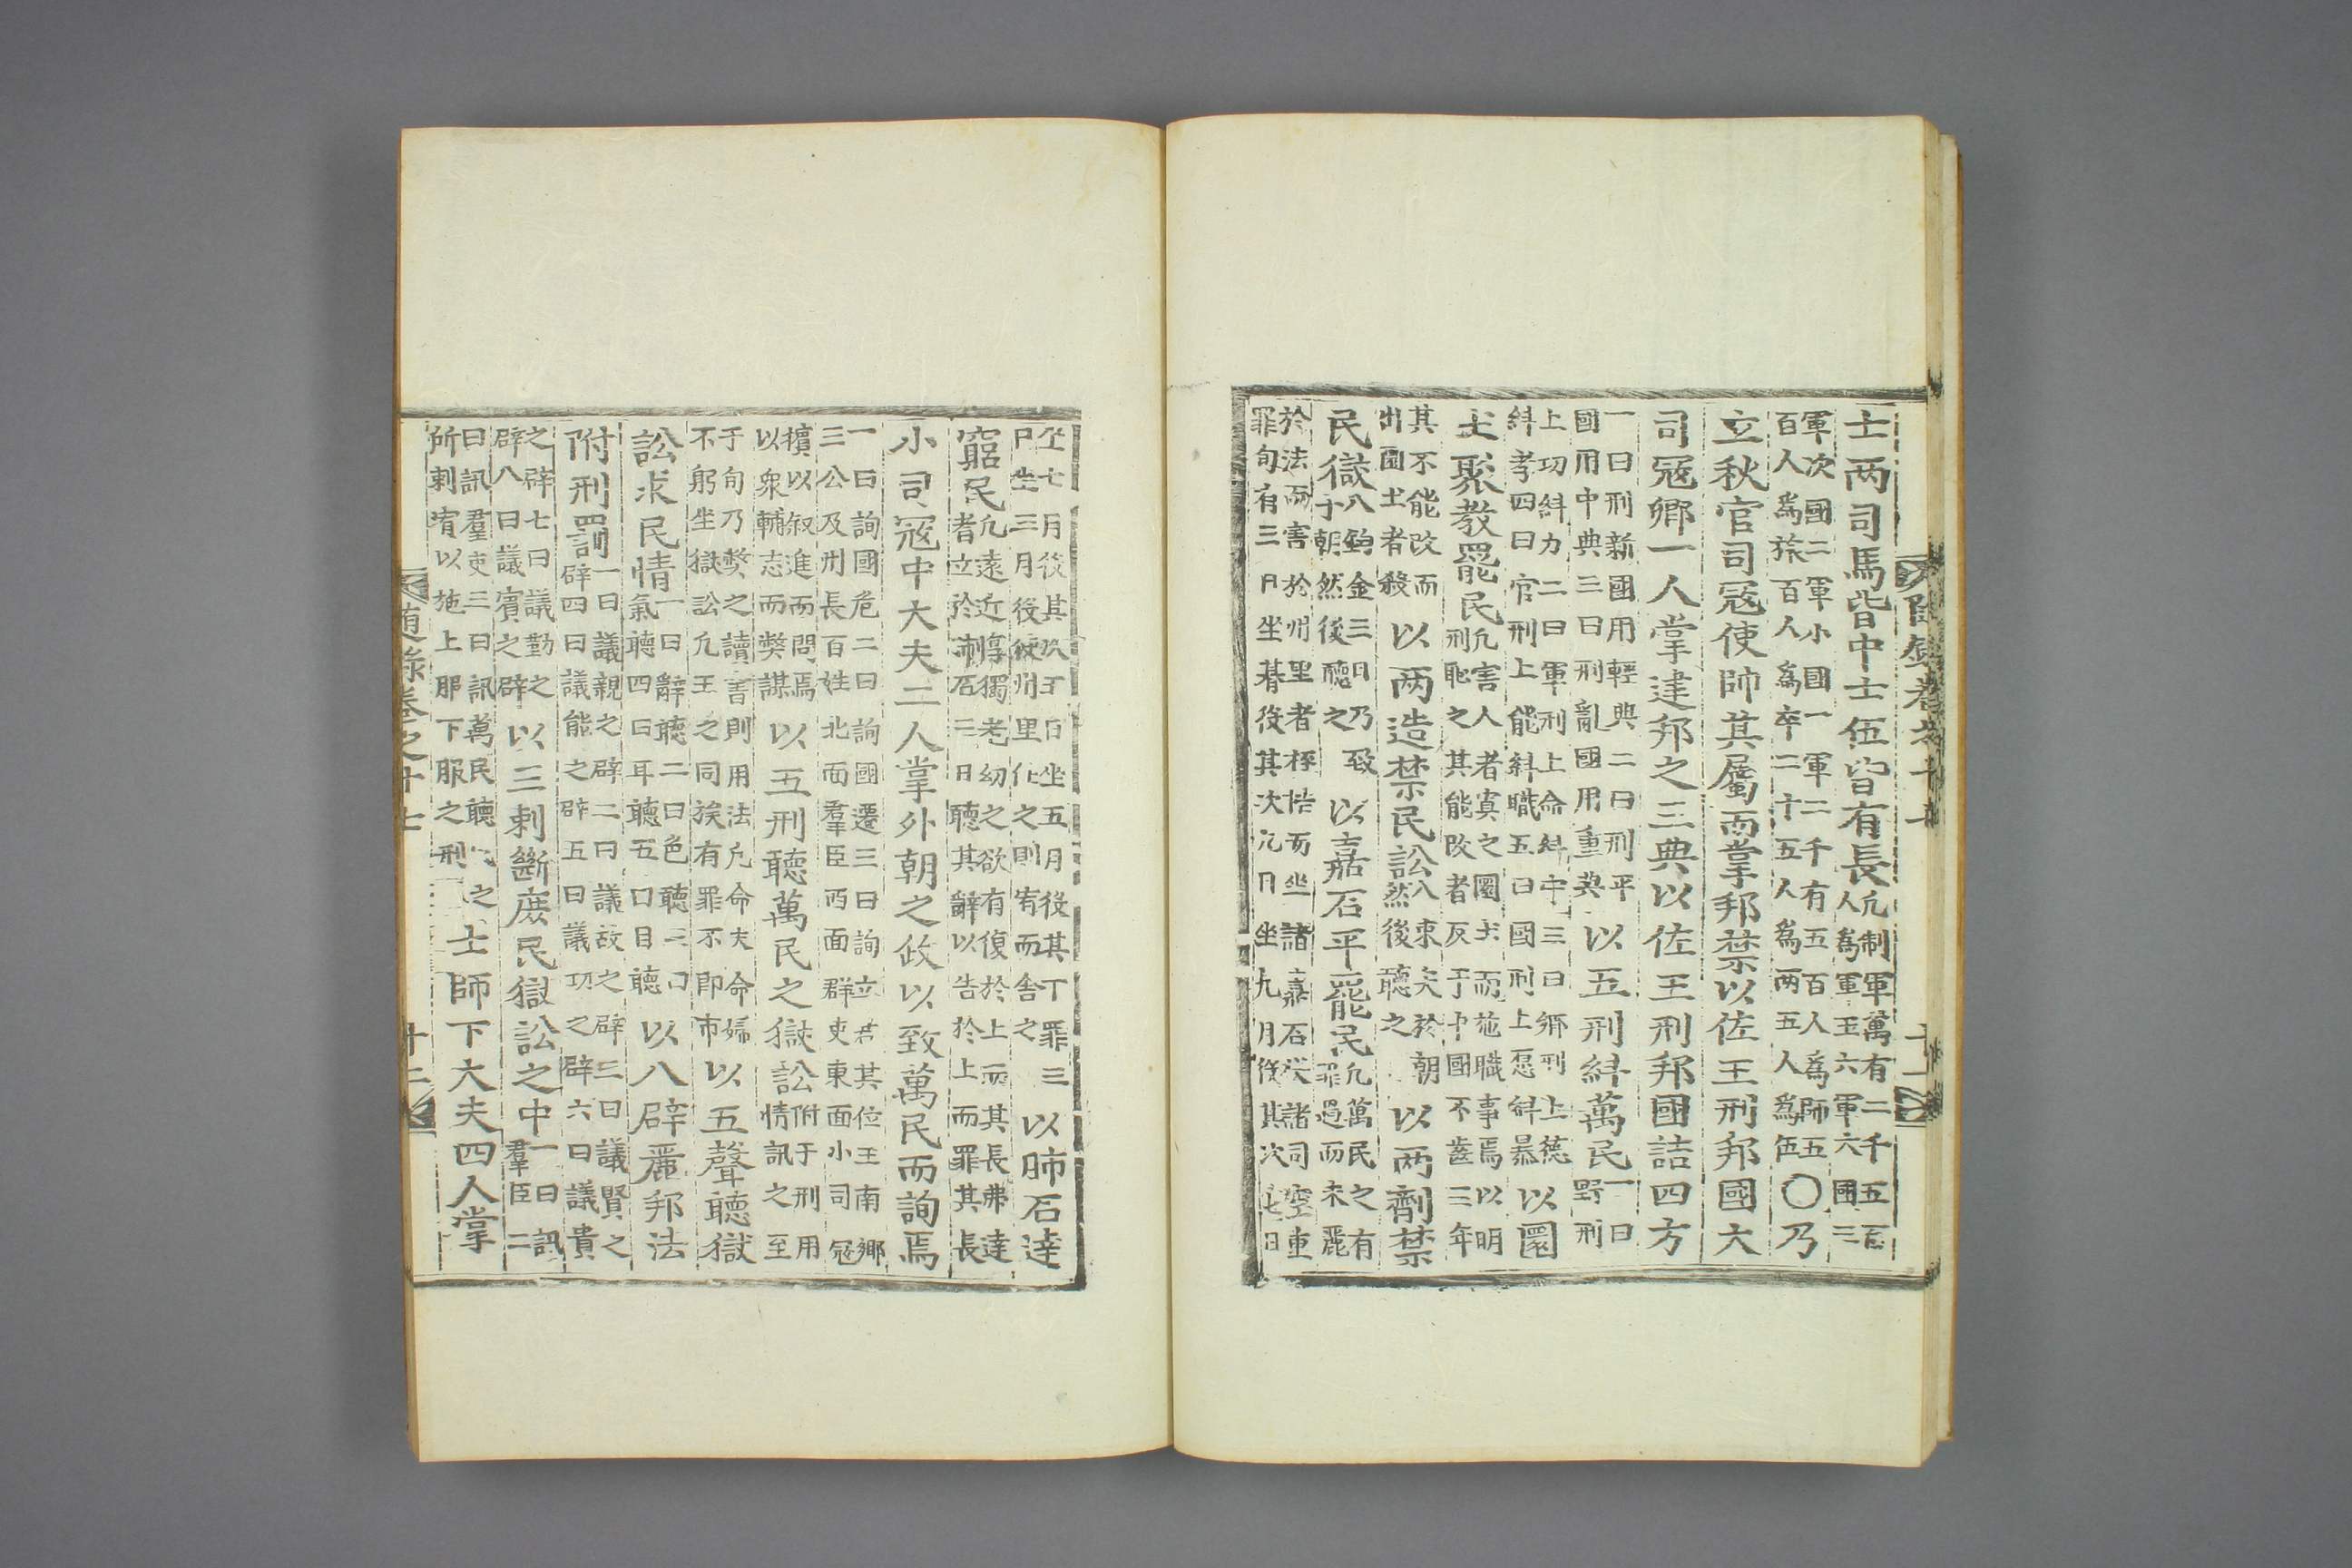 士两司馬皆中士伍皆有長凡制軍萬有二千五百
人爲軍王六軍六國三
軍次國二軍小國一軍二千有五百人爲師五
百人爲旅百人爲卒二十五人爲两五人爲伍〇乃
立秋官司冦使帥其屬而掌邦禁以佐王刑邦國大
司冦卿一人掌建邦之三典以佐王刑邦國詰四方
一曰刑新國用輕典二曰刑平
國用中典三曰刑亂國用重典以五刑糾萬民一曰
野刑
上功糾力二曰軍刑上命糾中三曰鄉刑上德
糾孝四曰官刑上能糾職五曰國刑上愿糾暴以圜
土聚教罷民凡害人者寘之圜土而施職事焉以明
刑恥之其能改者反于中國不齒三年
其不能改而
出圜土者殺以两造禁民訟入束矢於朝
然後聽之以两劑禁
民獄八鈞金三日乃致
于朝然後聽之以嘉石平罷民凡萬民之有
罪過而未麗
於法而害於州里者桎梏而坐諸嘉石役諸司空重
罪旬有三日坐朞役其次九日坐九月役其次七日
坐七月役其次五日坐五月役其下罪三
日坐三月役使州里任之則宥而舍之以肺石達
窮民凡遠近惸獨老幼之欲有復於上而其長弗達
者立於肺石三日聽其辭以告於上而罪其長
小司冦中大夫二人掌外朝之政以致萬民而詢焉
一曰詢國危二曰詢國遷三曰詢立君其位王南鄉
三公及州長百姓北面羣臣西面群吏東面小司冦
擯以叙進而問焉
以衆輔志而弊謀以五刑聽萬民之獄訟附于刑用
情訊之至
于旬乃弊之讀書則用法凡命夫命婦
不躬坐獄訟凡王之同族有罪不即市以五聲聽獄
訟求民情一曰辭聽二曰色聽三曰
氣聽四曰耳聽五曰目聽以八辟麗邦法
附刑罰一曰議親之辟二曰議故之辟三曰議賢之
辟四曰議能之辟五曰議功之辟六曰議貴
之辟七曰議勤之
辟八曰議賓之辟以三刺斷庶民獄訟之中一曰訊
羣臣二
曰訊羣吏三曰訊萬民聽民之
所刺宥以施上服下服之刑士師下大夫四人掌
随錄卷之十七
十二